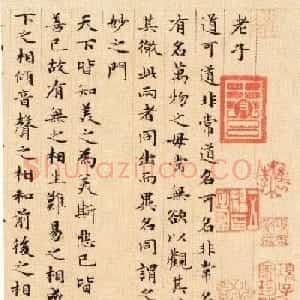 老子
道可道非常道名可名非常
有名萬物之母常無欲以觀其
其徼此兩者同出而異名同謂之
妙之門
天下皆知美之為美斯惡已皆
善已故有無之相生難易之相
下之相傾音聲之相和前後之相